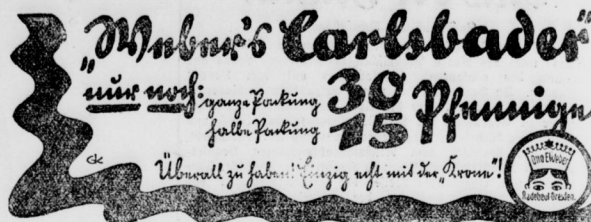 „Weber's Carlsbader“
nur noch:
ganze Packung 30 Pfennige
halbe Packung 15
Überall zu haben! Einzig echt mit der „Krone“!
Gk
Otto E. Weber
Radebeul-Dresden